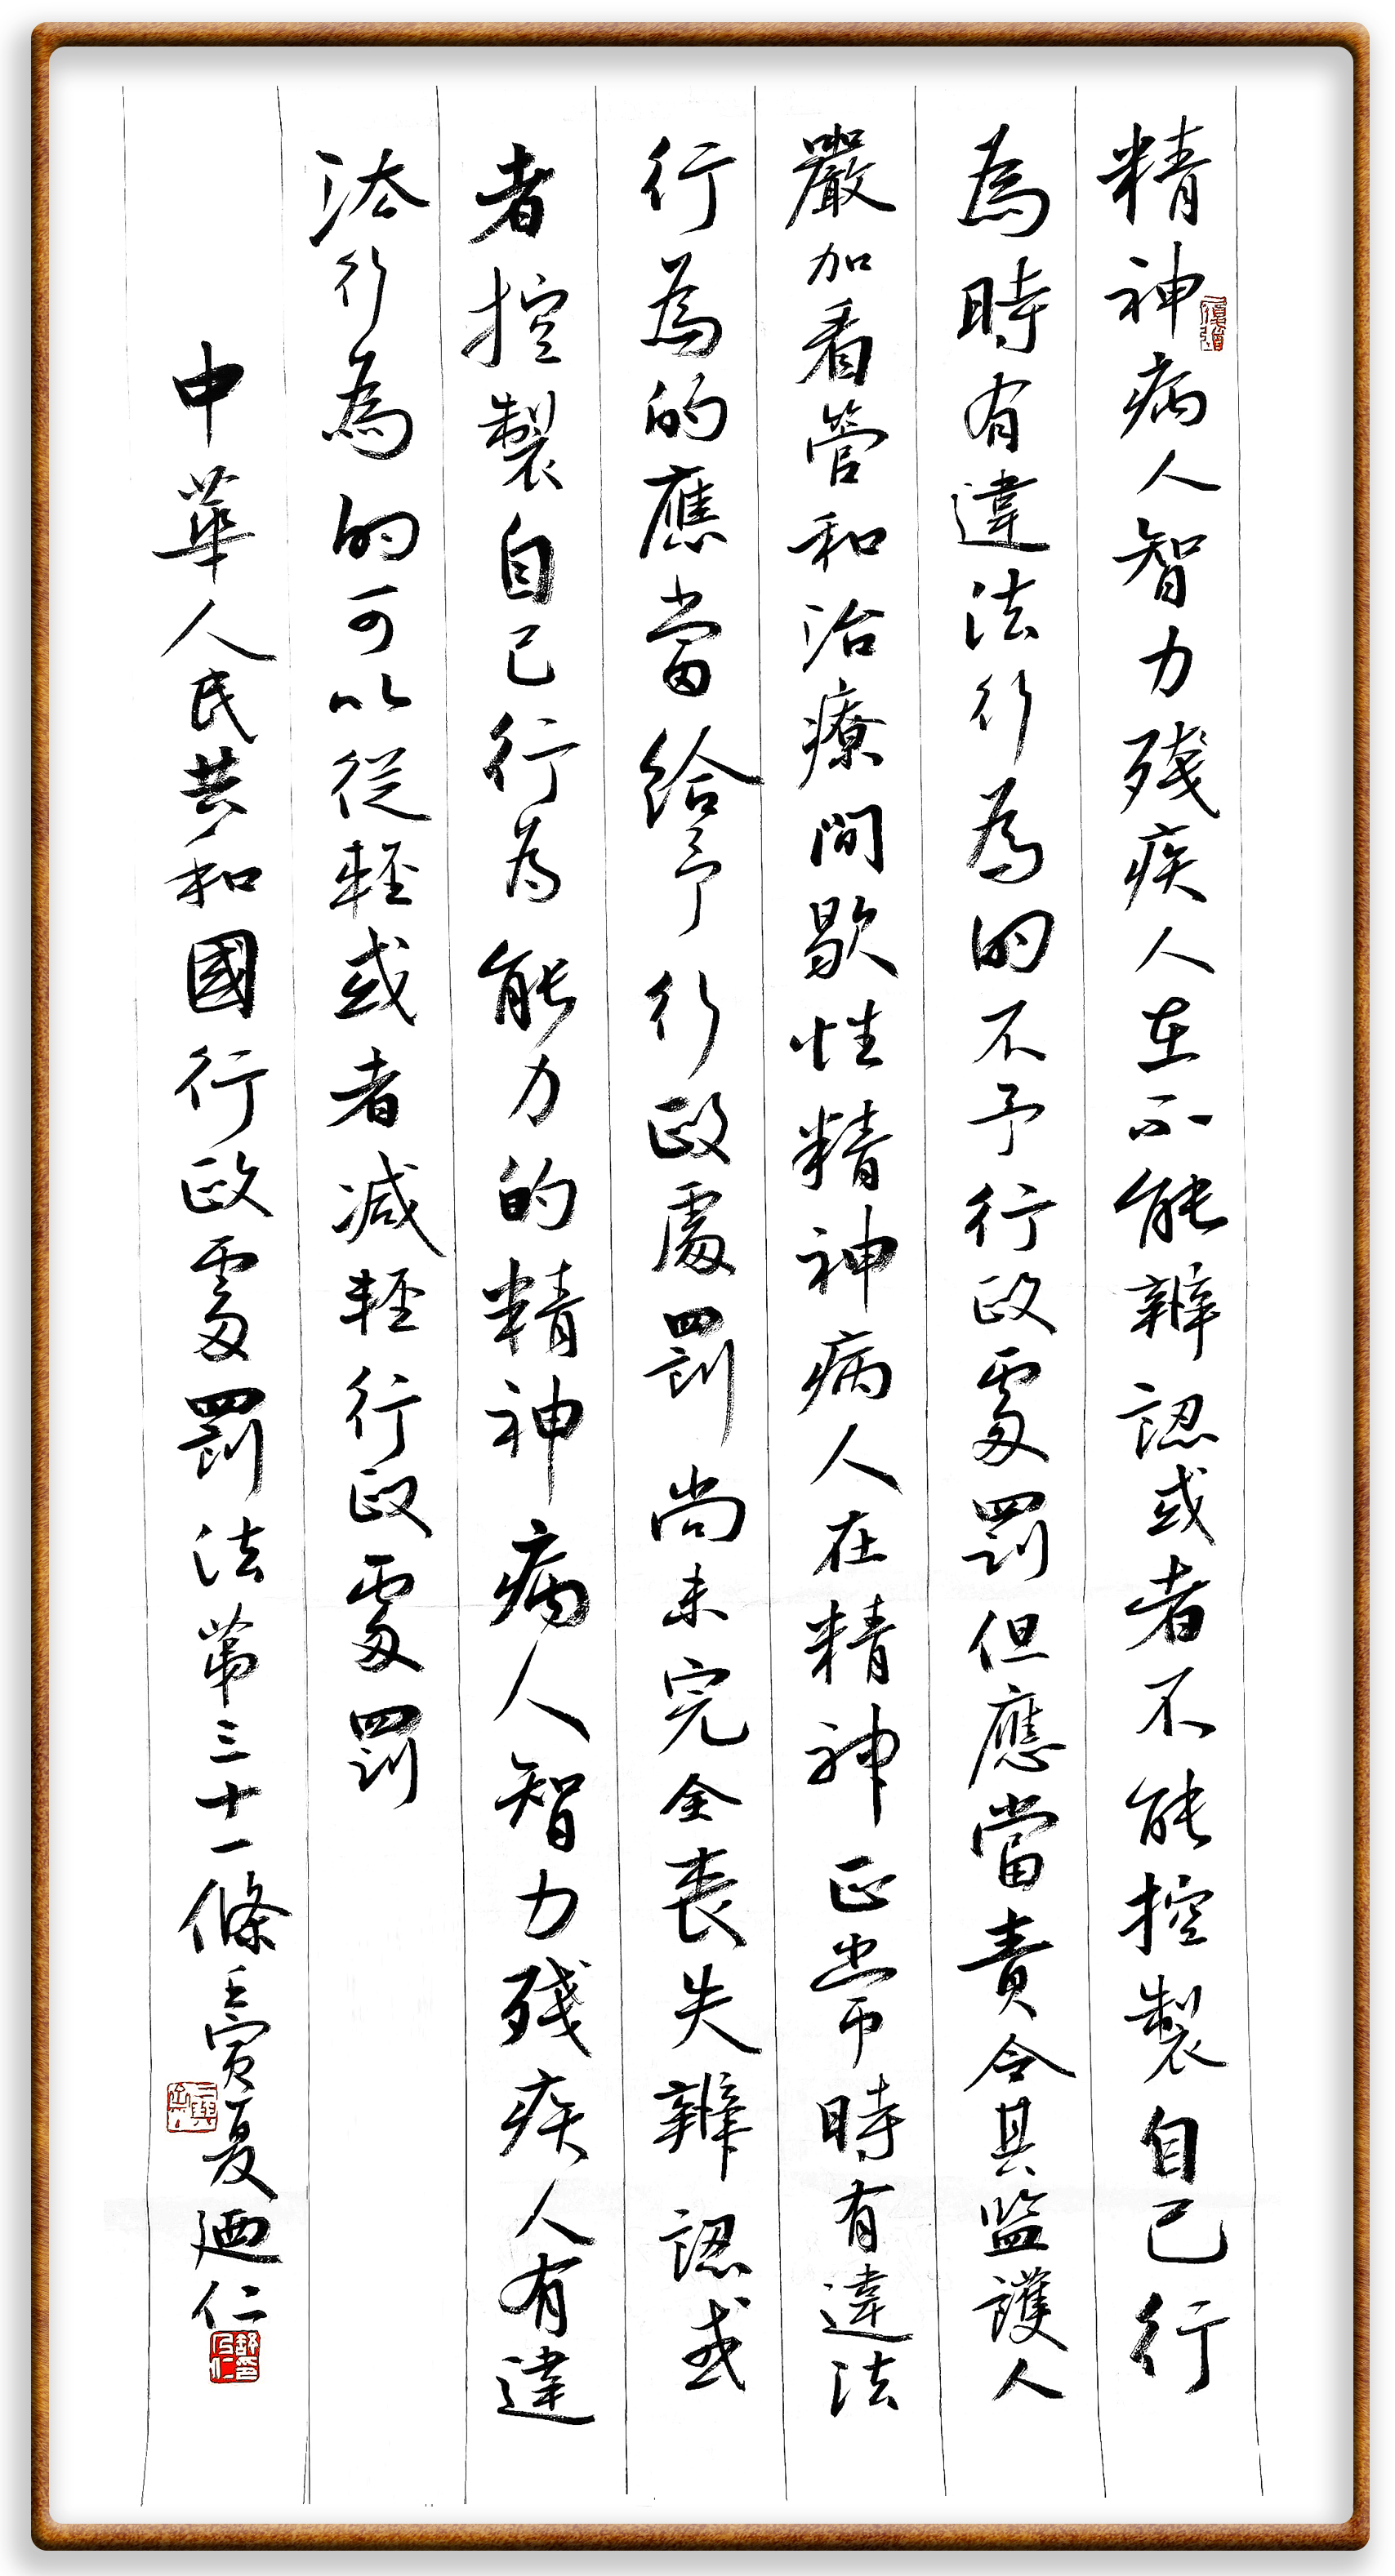 精神病人智力殘疾人在不能辨認或者不能控製自己行
為時有違法行為的不予行政處罰但應當責令其監護人
嚴加看管和治療間歇性精神病人在精神正常時有違法
行為的應當給予行政處罰尚未完全喪失辨認或
者控製自己行為能力的精神病人智力殘疾人有違
法行為的可以從輕或者減輕行政處罰
中華人民共和國行政處罰法第三十一條壬寅夏廼仁